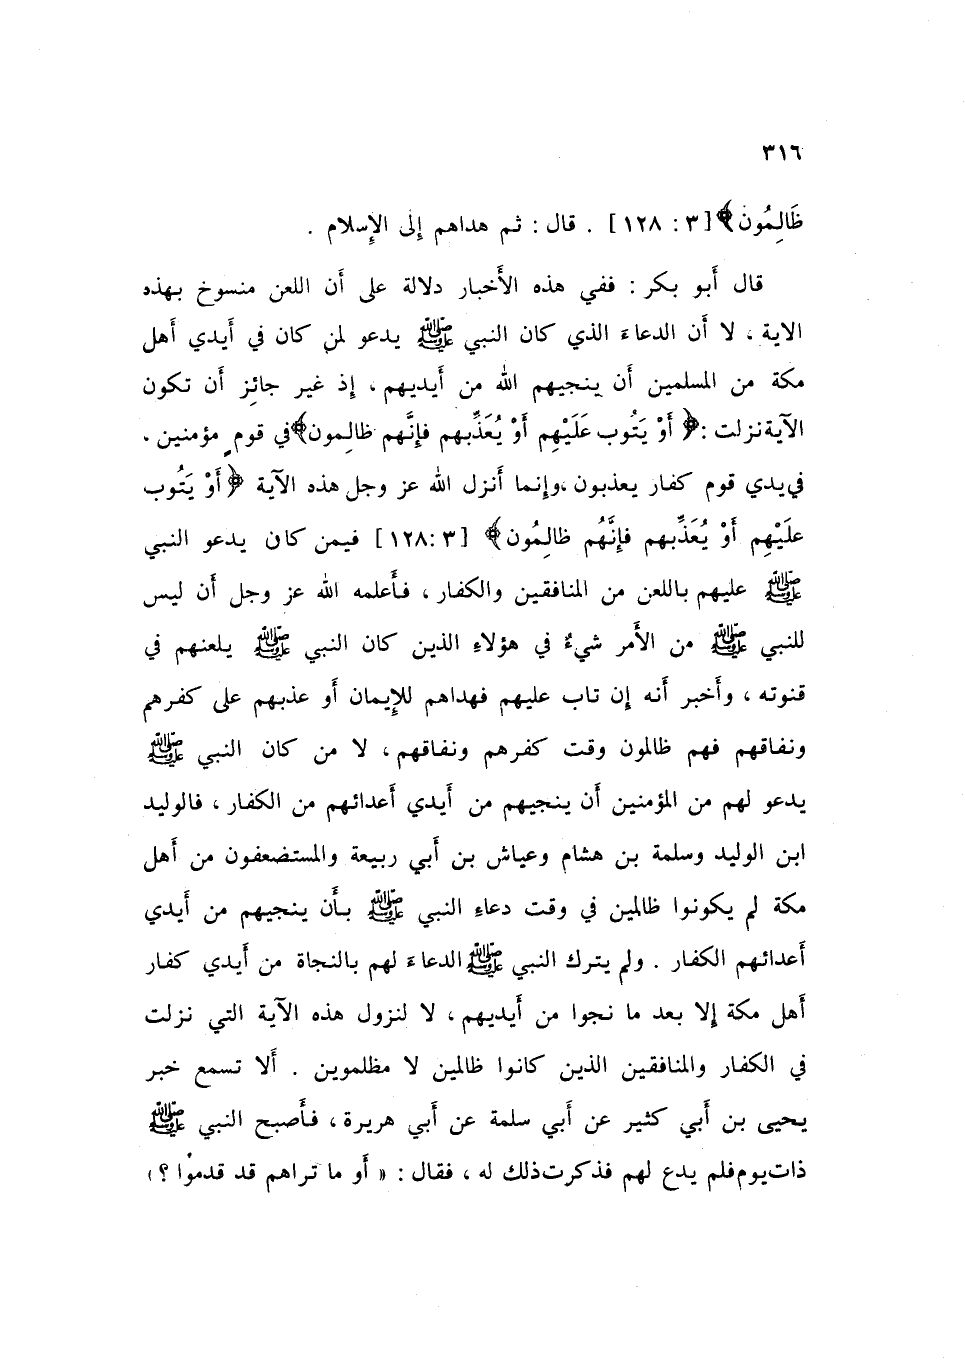 ٣١٦
ظَالِمُونَ﴾[٣ : ١٢٨] . قال : ثم هداهم إلى الإسلام .
قال أبو بكر : ففي هذه الأخبار دلالة على أن اللعن منسوخ بهذه
الاية ، لا أن الدعاء الذي كان النبي ﷺ يدعو لمن كان في أيدي أهل
مكة من المسلمين أن ينجيهم الله من أيديهم ، إذ غير جائز أن تكون
الآية نزلت : ﴿ أَوْ يَتُوب عَلَيْهِم أَوْ يُعَذِّبهم فإنَّهم ظالِمون﴾في قومٍ مؤمنين .
في يدي قوم كفار يعذبون ،وإنما أنزل الله عز وجل هذه الآية ﴿أَوْ يَتُوب
علَيْهِم أَوْ يُعَذِّبهم فإنَّهُم ظالِمُون﴾ [٣ :١٢٨] فيمن كان يدعو النبي
ﷺ عليهم باللعن من المنافقين والكفار ، فأعلمه الله عز وجل أن ليس
للنبي ﷺ من الأمر شيءٌ في هؤلاءِ الذين كان النبي ﷺ يلعنهم في
قنوته ، وأخبر أنه إن تاب عليهم فهداهم للإيمان أو عذبهم على كفرهم
ونفاقهم فهم ظالمون وقت كفرهم ونفاقهم ، لا من كان النبي ﷺ
يدعو لهم من المؤمنين أن ينجيهم من أيدي أعدائهم من الكفار ، فالوليد
ابن الوليد وسلمة بن هشام وعياش بن أبي ربيعة والمستضعفون من أهل
مكة لم يكونوا ظالمين في وقت دعاءِ النبي ﷺ بأن ينجيهم من أيدي
أعدائهم الكفار . ولم يترك النبي ﷺ الدعاءَ لهم بالنجاة من أيدي كفار
أهل مكة إلا بعد ما نجوا من أيديهم ، لا لنزول هذه الآية التي نزلت
في الكفار والمنافقين الذين كانوا ظالمين لا مظلموين . ألا تسمع خبر
يحيى بن أبي كثير عن أبي سلمة عن أبي هريرة ، فأصبح النبي ﷺ
ذات يوم فلم يدع لهم فذكرت ذلك له ، فقال : « أو ما تراهم قد قدموْا ؟»